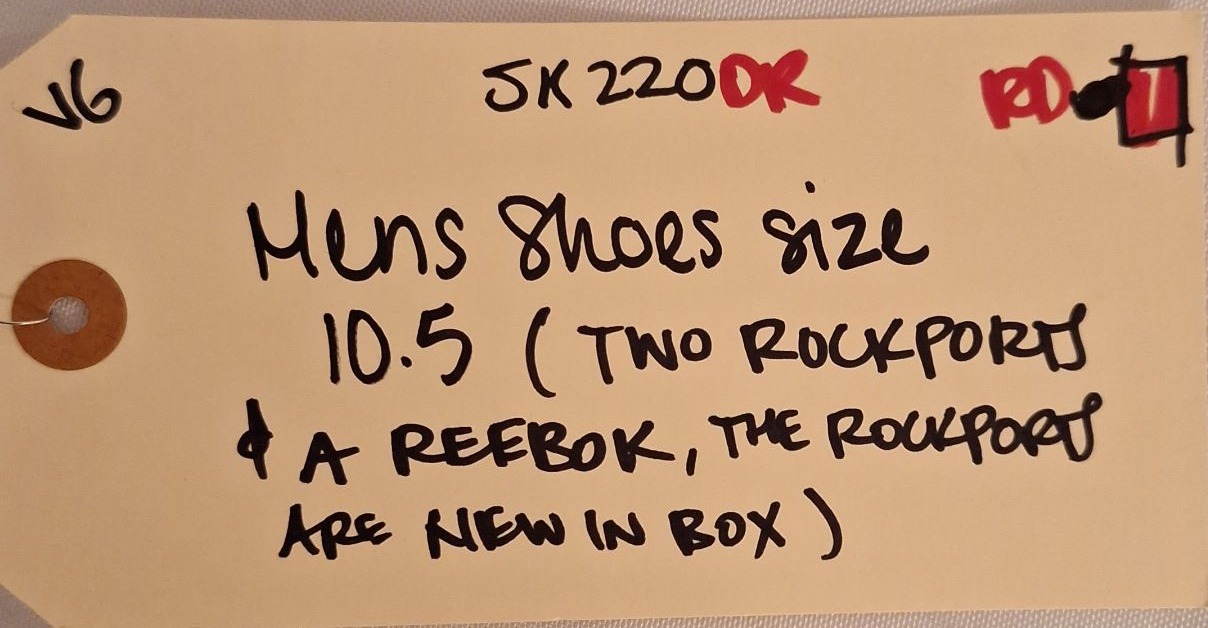 V6 JK220DR RD 1
Mens Shoes size
10.5 (TWO ROCKPORTS
& A REEBOK, THE ROCKPORTS
ARE NEW IN BOX)